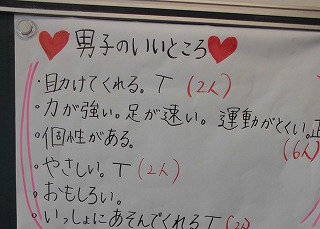 男子のいいところ
・助けてくれる。T (2人)
・力が強い。足が速い。運動がとくい。正
(6人)
・個性がある。
・やさしい。T (2人)
・おもしろい。
・いっしょにあそんでくれるT